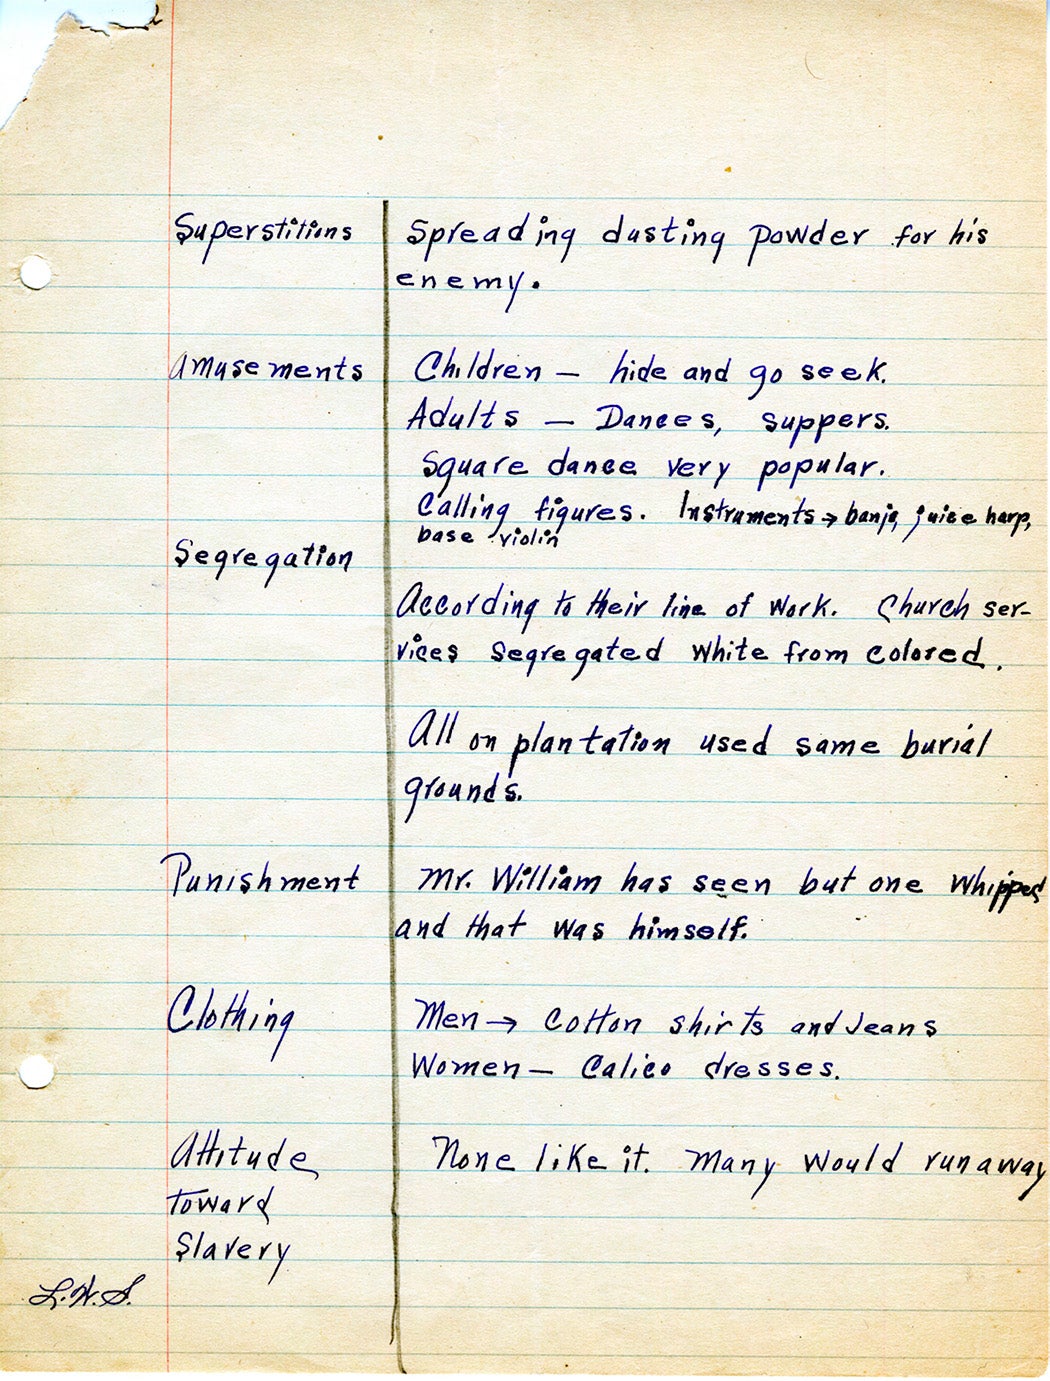 Superstitions Spreading dusting powder for his
enemy.
Amusements Children — hide and go seek.
Adults — Dances, suppers.
Square dance very popular.
Calling figures. Instruments → banjo, juice harp,
base violin
Segregation
According to their line of work. Church ser-
vices segregated white from colored.
All on plantation used same burial
grounds.
Punishment Mr. William has seen but one whipped
and that was himself.
Clothing Men → cotton shirts and jeans
Women — Calico dresses.
Attitude None like it. Many would runaway
toward
Slavery
L.W.S.